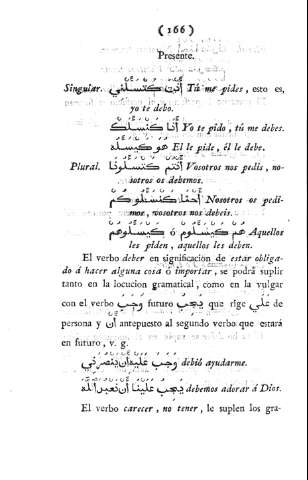 ( 166 )
Presente.
Singular. أنت كتسلني Tú me pides, esto es,
yo te debo.
أنا كنسلك Yo te pido, tú me debes.
هو كيسله El le pide, él le debe.
Plural. أنتم كتسلونا Vosotros nos pedis, no-
sotros os debemos.
احنا كنسلوكم Nosotros os pedi-
mos, vosotros nos debeis.
هم كيسلوهم ó كيسلوهم Aquellos
les piden, aquellos les deben.
El verbo deber en significacion de estar obliga-
do á hacer alguna cosa ó importar, se podrá suplir
tanto en la locucion gramatical, como en la vulgar
con el verbo وجب futuro يجب que rige على de
persona y أن antepuesto al segundo verbo que estará
en futuro, v. g.
وجب عليه أن ينصرني debió ayudarme.
يجب علينا أن نعبد الله debemos adorar á Dios.
El verbo carecer, no tener, le suplen los gra-